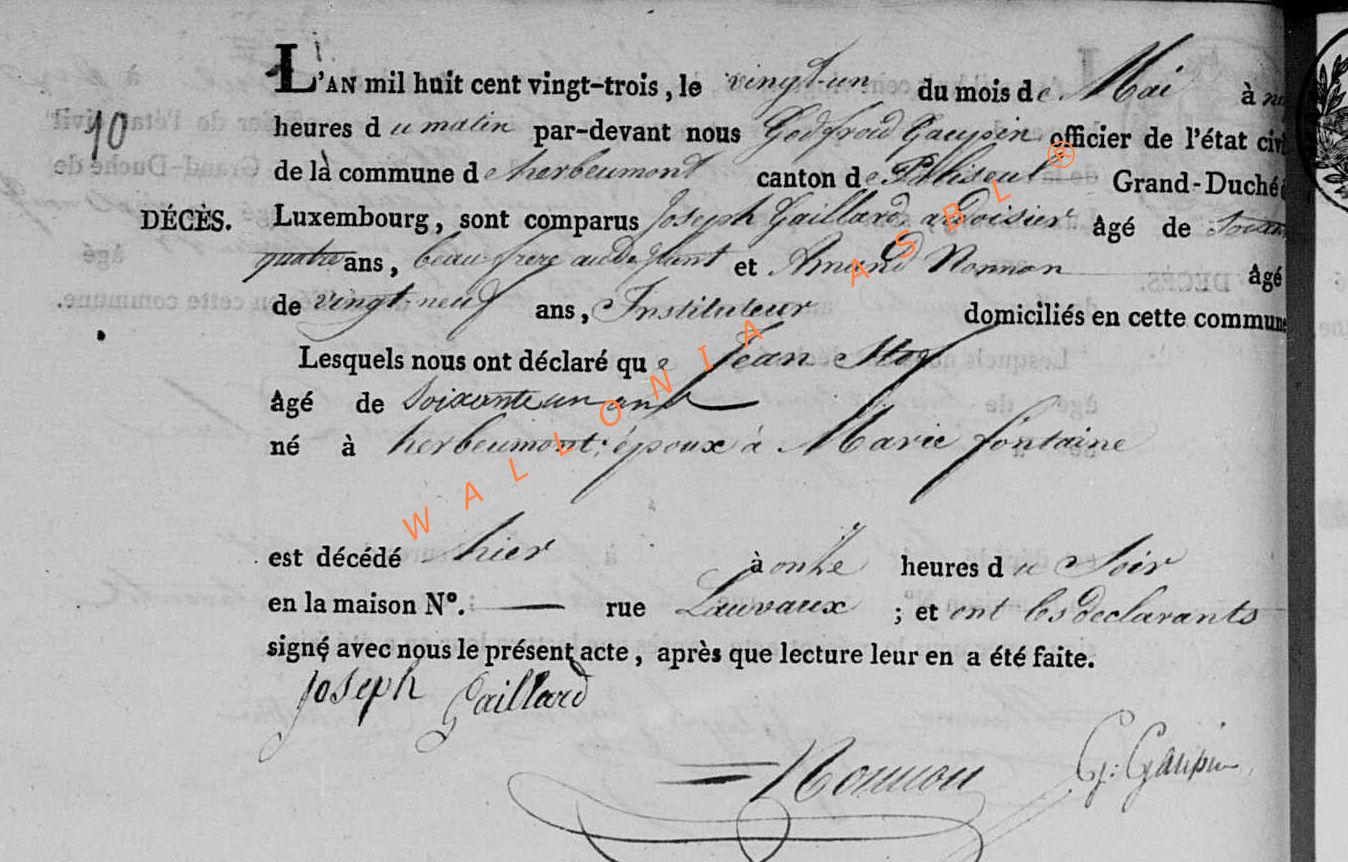 L'AN mil huit cent vingt-trois, le vingt-un du mois de Mai à
10 heures du matin par-devant nous Godfroid Gaupin officier de l'état civi
de là commune de herbeumont canton de Paliseul Grand-Duché
DÉCÈS. Luxembourg, sont comparus Joseph Gaillard ardoisier âgé de
quatre ans, beau frere au defunt et Amand Nonnon âgé
de vingt-neuf ans, Instituteur domiciliés en cette commune
Lesquels nous ont déclaré que Jean
âgé de Soixante un ans
né à herbeumont: époux à Marie fontaine
est décédé hier à onze heures du Soir
en la maison N°. : — rue Lauvaux ; et ont les declarants
signé avec nous le présent acte, après que lecture leur en a été faite.
Joseph Gaillard
Nonnon G: Gaupin
WALLONIA ASBL ®